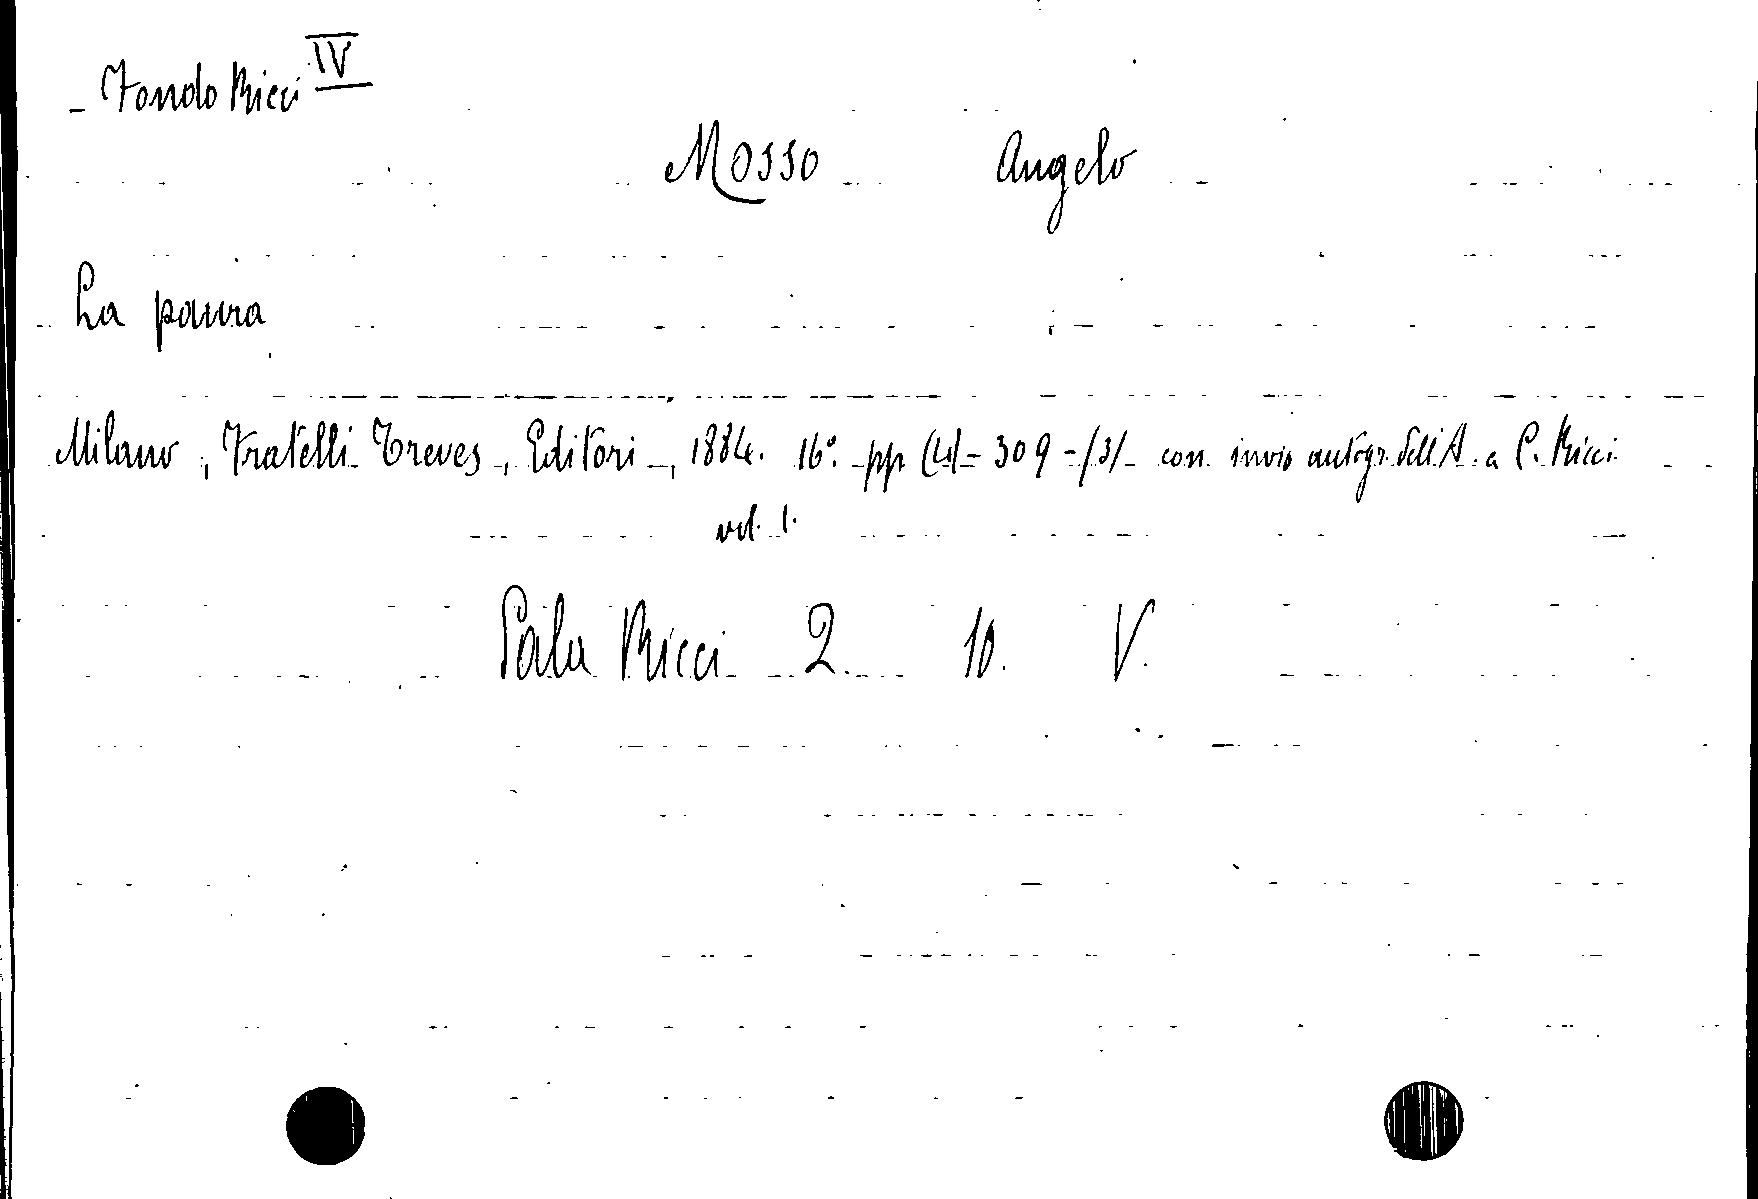 Fondo Ricci IV
Mosso Angelo
La paura
Milano, Fratelli Treves, Editori, 1884. 16°. pp (4) - 309 - (3) con invio autogr. dell'A. a C. Ricci
vol. 1.
Sala Ricci 2. 10. V.